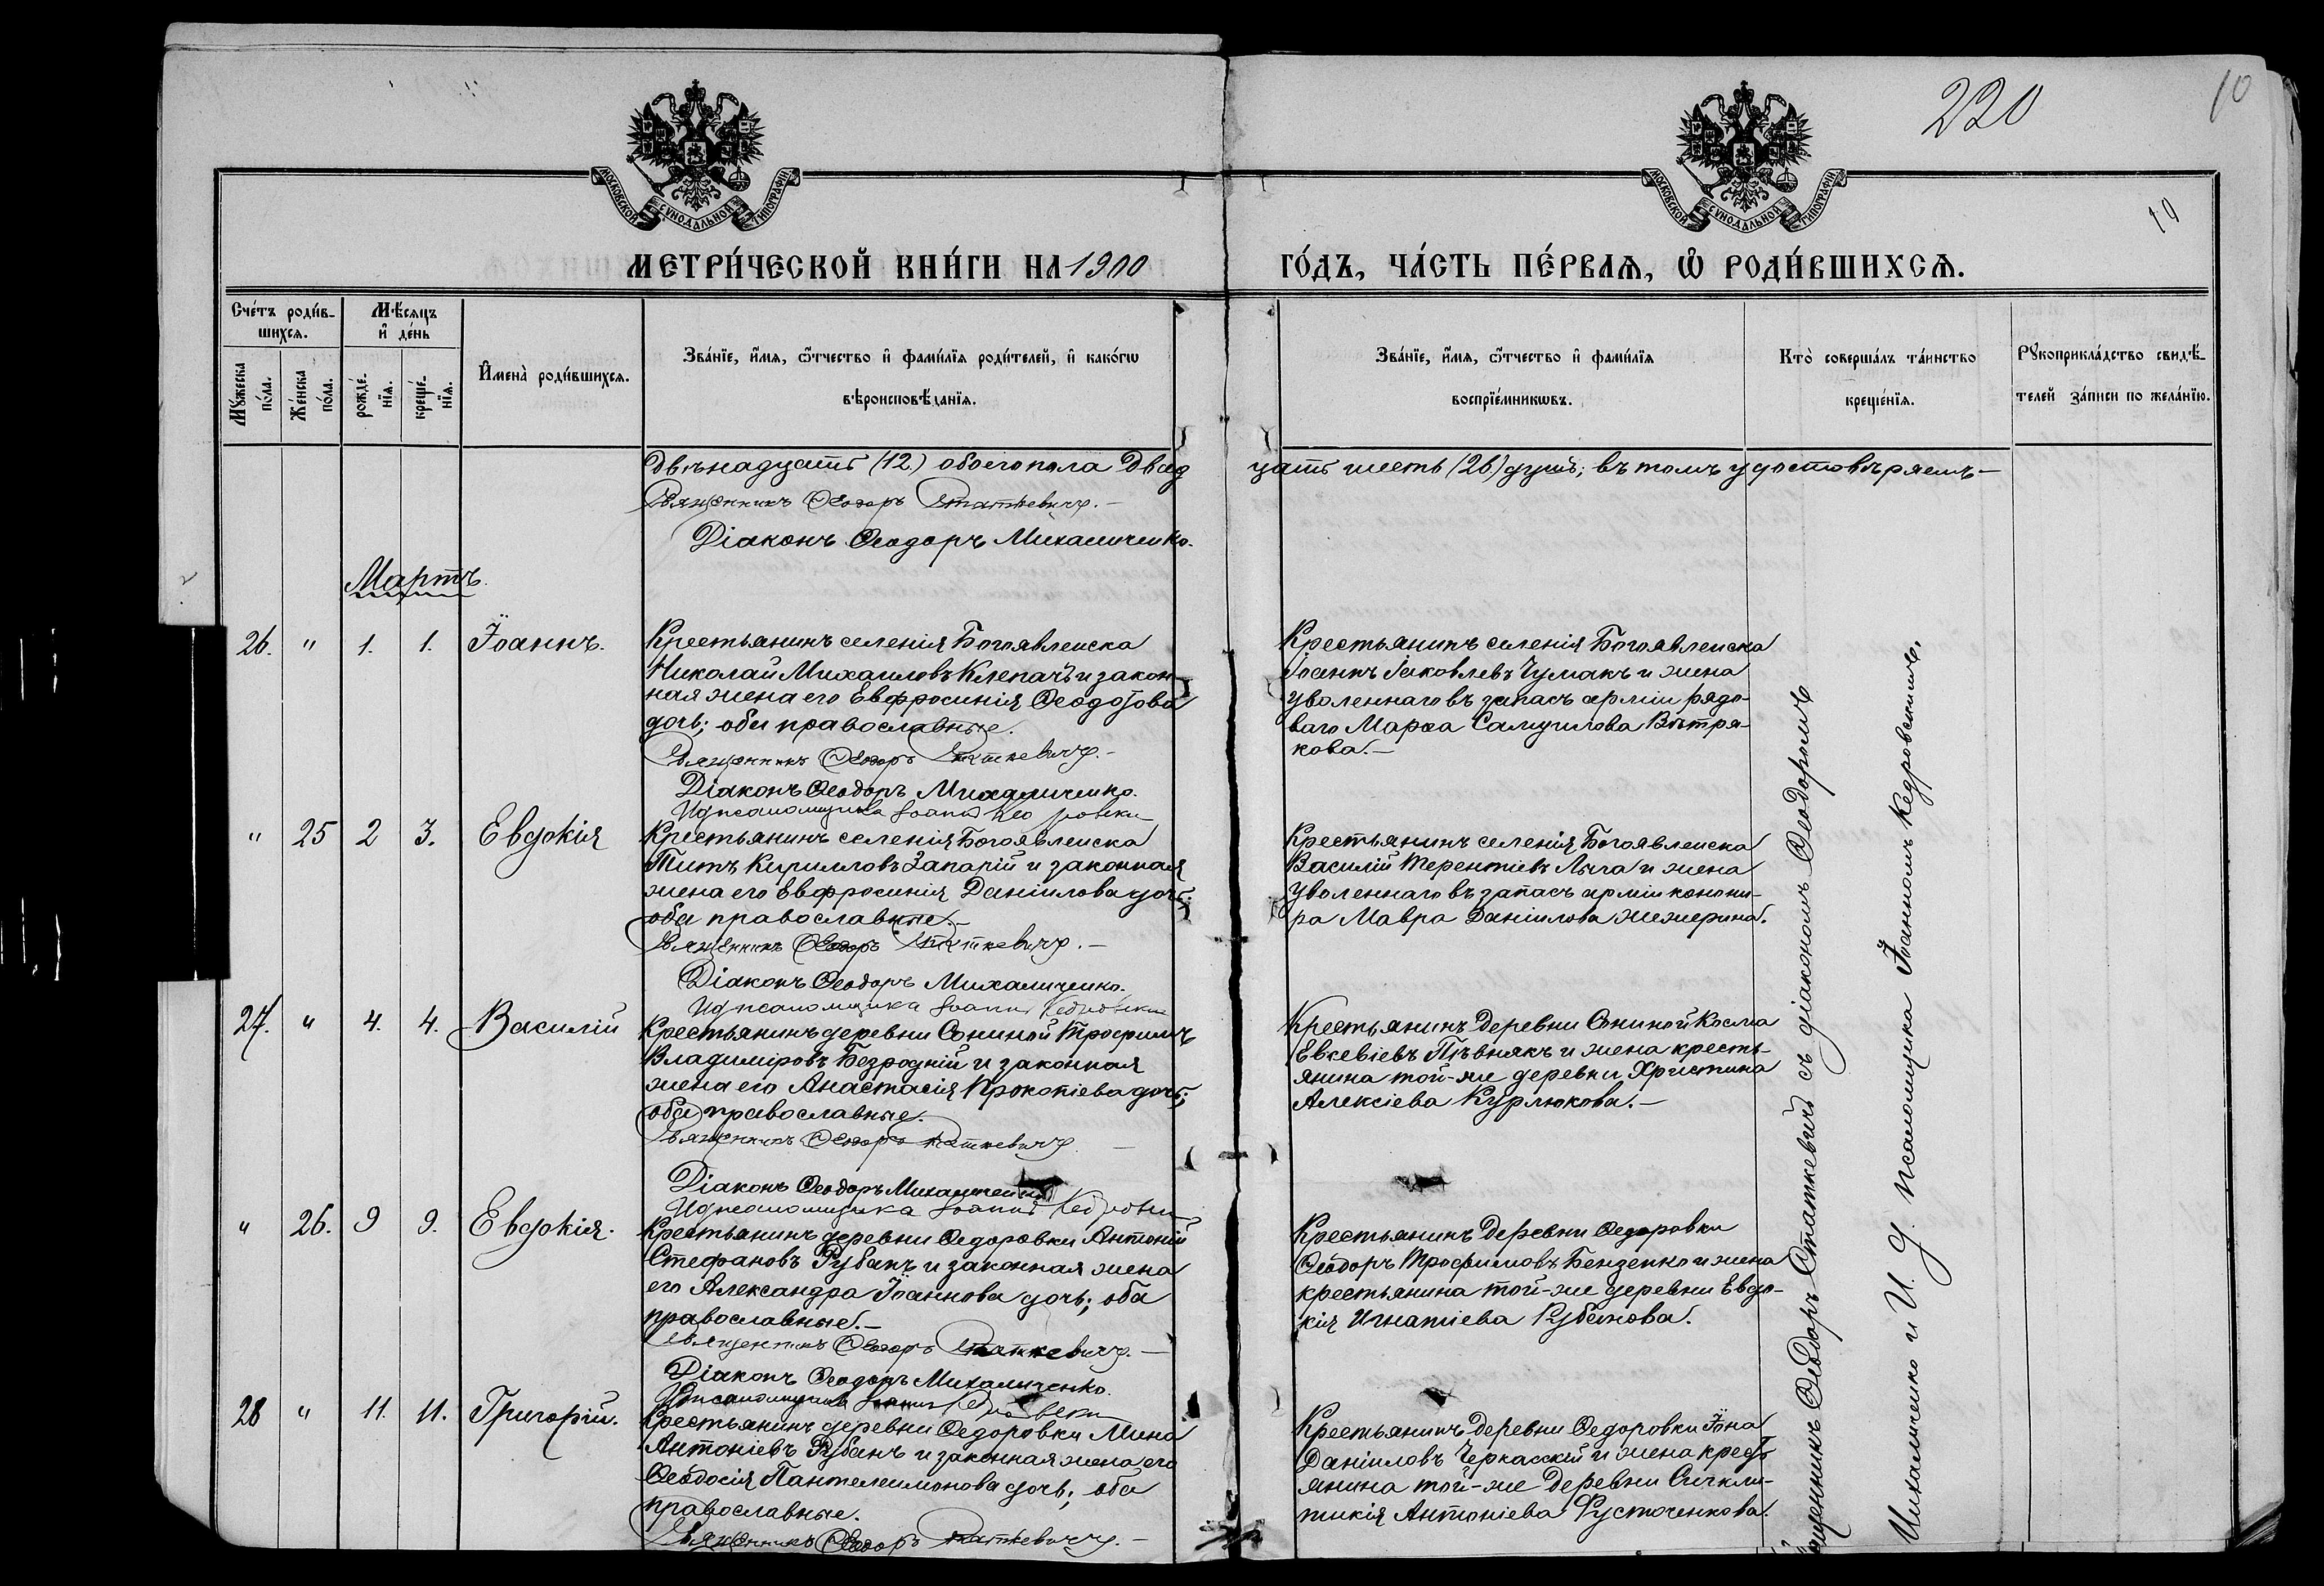 220
10
19
МОСКОВСКОЙ СѴНОДАЛЬНОЙ ТИПОГРАФІИ
МОСКОВСКОЙ СѴНОДАЛЬНОЙ ТИПОГРАФІИ
МЕТРИ́ЧЕСКОЙ КНИ́ГИ НА 1900
ГО́ДЪ, ЧА́СТЬ ПЕ́РВАѦ, Ѽ РОДИ́ВШИХСѦ.
Сче́тъ роди́в-
шихсѧ.
Мѣ́сѧцъ
и҆ де́нь
Мꙋ́жеска
по́ла.
Же́нска
по́ла.
рожде́-
нїѧ.
креще́-
нїѧ.
И҆мена̀ роди́вшихсѧ.
Зва́нїе, и҆́мѧ, ѻ҆́тчество и҆ фами́лїѧ роди́телей, и҆ како́гѡ
вѣроисповѣ́данїѧ.
Зва́нїе, и҆́мѧ, ѻ҆́тчество и҆ фами́лїѧ
воспрїе́мникѡвъ.
Кто̀ соверша́лъ та́инство
креще́нїѧ.
Рꙋкоприкла́дство свидѣ́-
телей за́писи по жела́нїю.
двѣнадцать (12) обоего пола двад
цать шесть (26) душъ; въ томъ удостовѣряемъ —
Священникъ Ѳеодоръ Статкевичъ. —
Діаконъ Ѳеодоръ Михаличенко.
Мартъ.
26. " 1. 1. Іоаннъ.
Крестьянинъ селенія Богоявленска
Николай Михаиловъ Клепачъ и закон-
ная жена его Евфросинія Ѳеодотова
дочь; оба православные.
Священникъ Ѳеодоръ Статкевичъ. —
Діаконъ Ѳеодоръ Михаличенко.
И д псаломщика Іоаннъ Кедровскій
Крестьянинъ селенія Богоявленска
Іоаннъ Іаковлевъ Чумакъ и жена
уволеннаго въ запасъ арміи рядо-
ваго Марѳа Самуилова Вѣтря-
кова. —
" 25 2 3. Евдокія
Крестьянинъ селенія Богоявленска
Титъ Кирилловъ Запарій и законная
жена его Евфросинія Даніилова дочь;
оба православные. —
Священникъ Ѳеодоръ Статкевичъ. —
Діаконъ Ѳеодоръ Михаличенко.
И д псаломщика Іоаннъ Кедровскій
Крестьянинъ селенія Богоявленска
Василій Терентіевъ Лыга и жена
уволеннаго въ запасъ арміи канони-
ра Мавра Даніилова Жежерина.
27. " 4. 4. Василій
Крестьянинъ деревни Сониной Трофимъ
Владиміровъ Безродній и законная
жена его Анастасія Прокопіева дочь;
оба православные.
Священникъ Ѳеодоръ Статкевичъ. —
Діаконъ Ѳеодоръ Михаличенко
И д псаломщика Іоаннъ Кедровскій
Крестьянинъ деревни Сониной Косма
Евсевіевъ Пѣвнякъ и жена кресть-
янина той-же деревни Христина
Алексіева Курлюкова. —
" 26. 9 9. Евдокія.
Крестьянинъ деревни Ѳедоровки Антоній
Стефановъ Рубанъ и законная жена
его Александра Іоаннова дочь; оба
православные. —
Священникъ Ѳеодоръ Статкевичъ. —
Діаконъ Ѳеодоръ Михаличенко.
И д псаломщика Іоаннъ Кедровскій
Крестьянинъ деревни Ѳедоровки
Ѳеодоръ Трофимовъ Бензенко и жена
крестьянина той-же деревни Евдо-
кія Игнатіева Рубанова.
28 " 11. 11. Григорій.
Крестьянинъ деревни Ѳедоровки Мина
Антоніевъ Рубанъ и законная жена его
Ѳеодосія Пантелеимонова дочь; оба
православные.
Священникъ Ѳеодоръ Статкевичъ. —
Крестьянинъ деревни Ѳедоровки Іона
Даніиловъ Черкасскій и жена кресть
янина той-же деревни Сигкли-
тикія Антоніева Фусточенкова.
Священникъ Ѳеодоръ Статкевичъ съ діакономъ Ѳеодоромъ
Михаличенко и И. Д. псаломщика Іоанномъ Кедровскимъ.